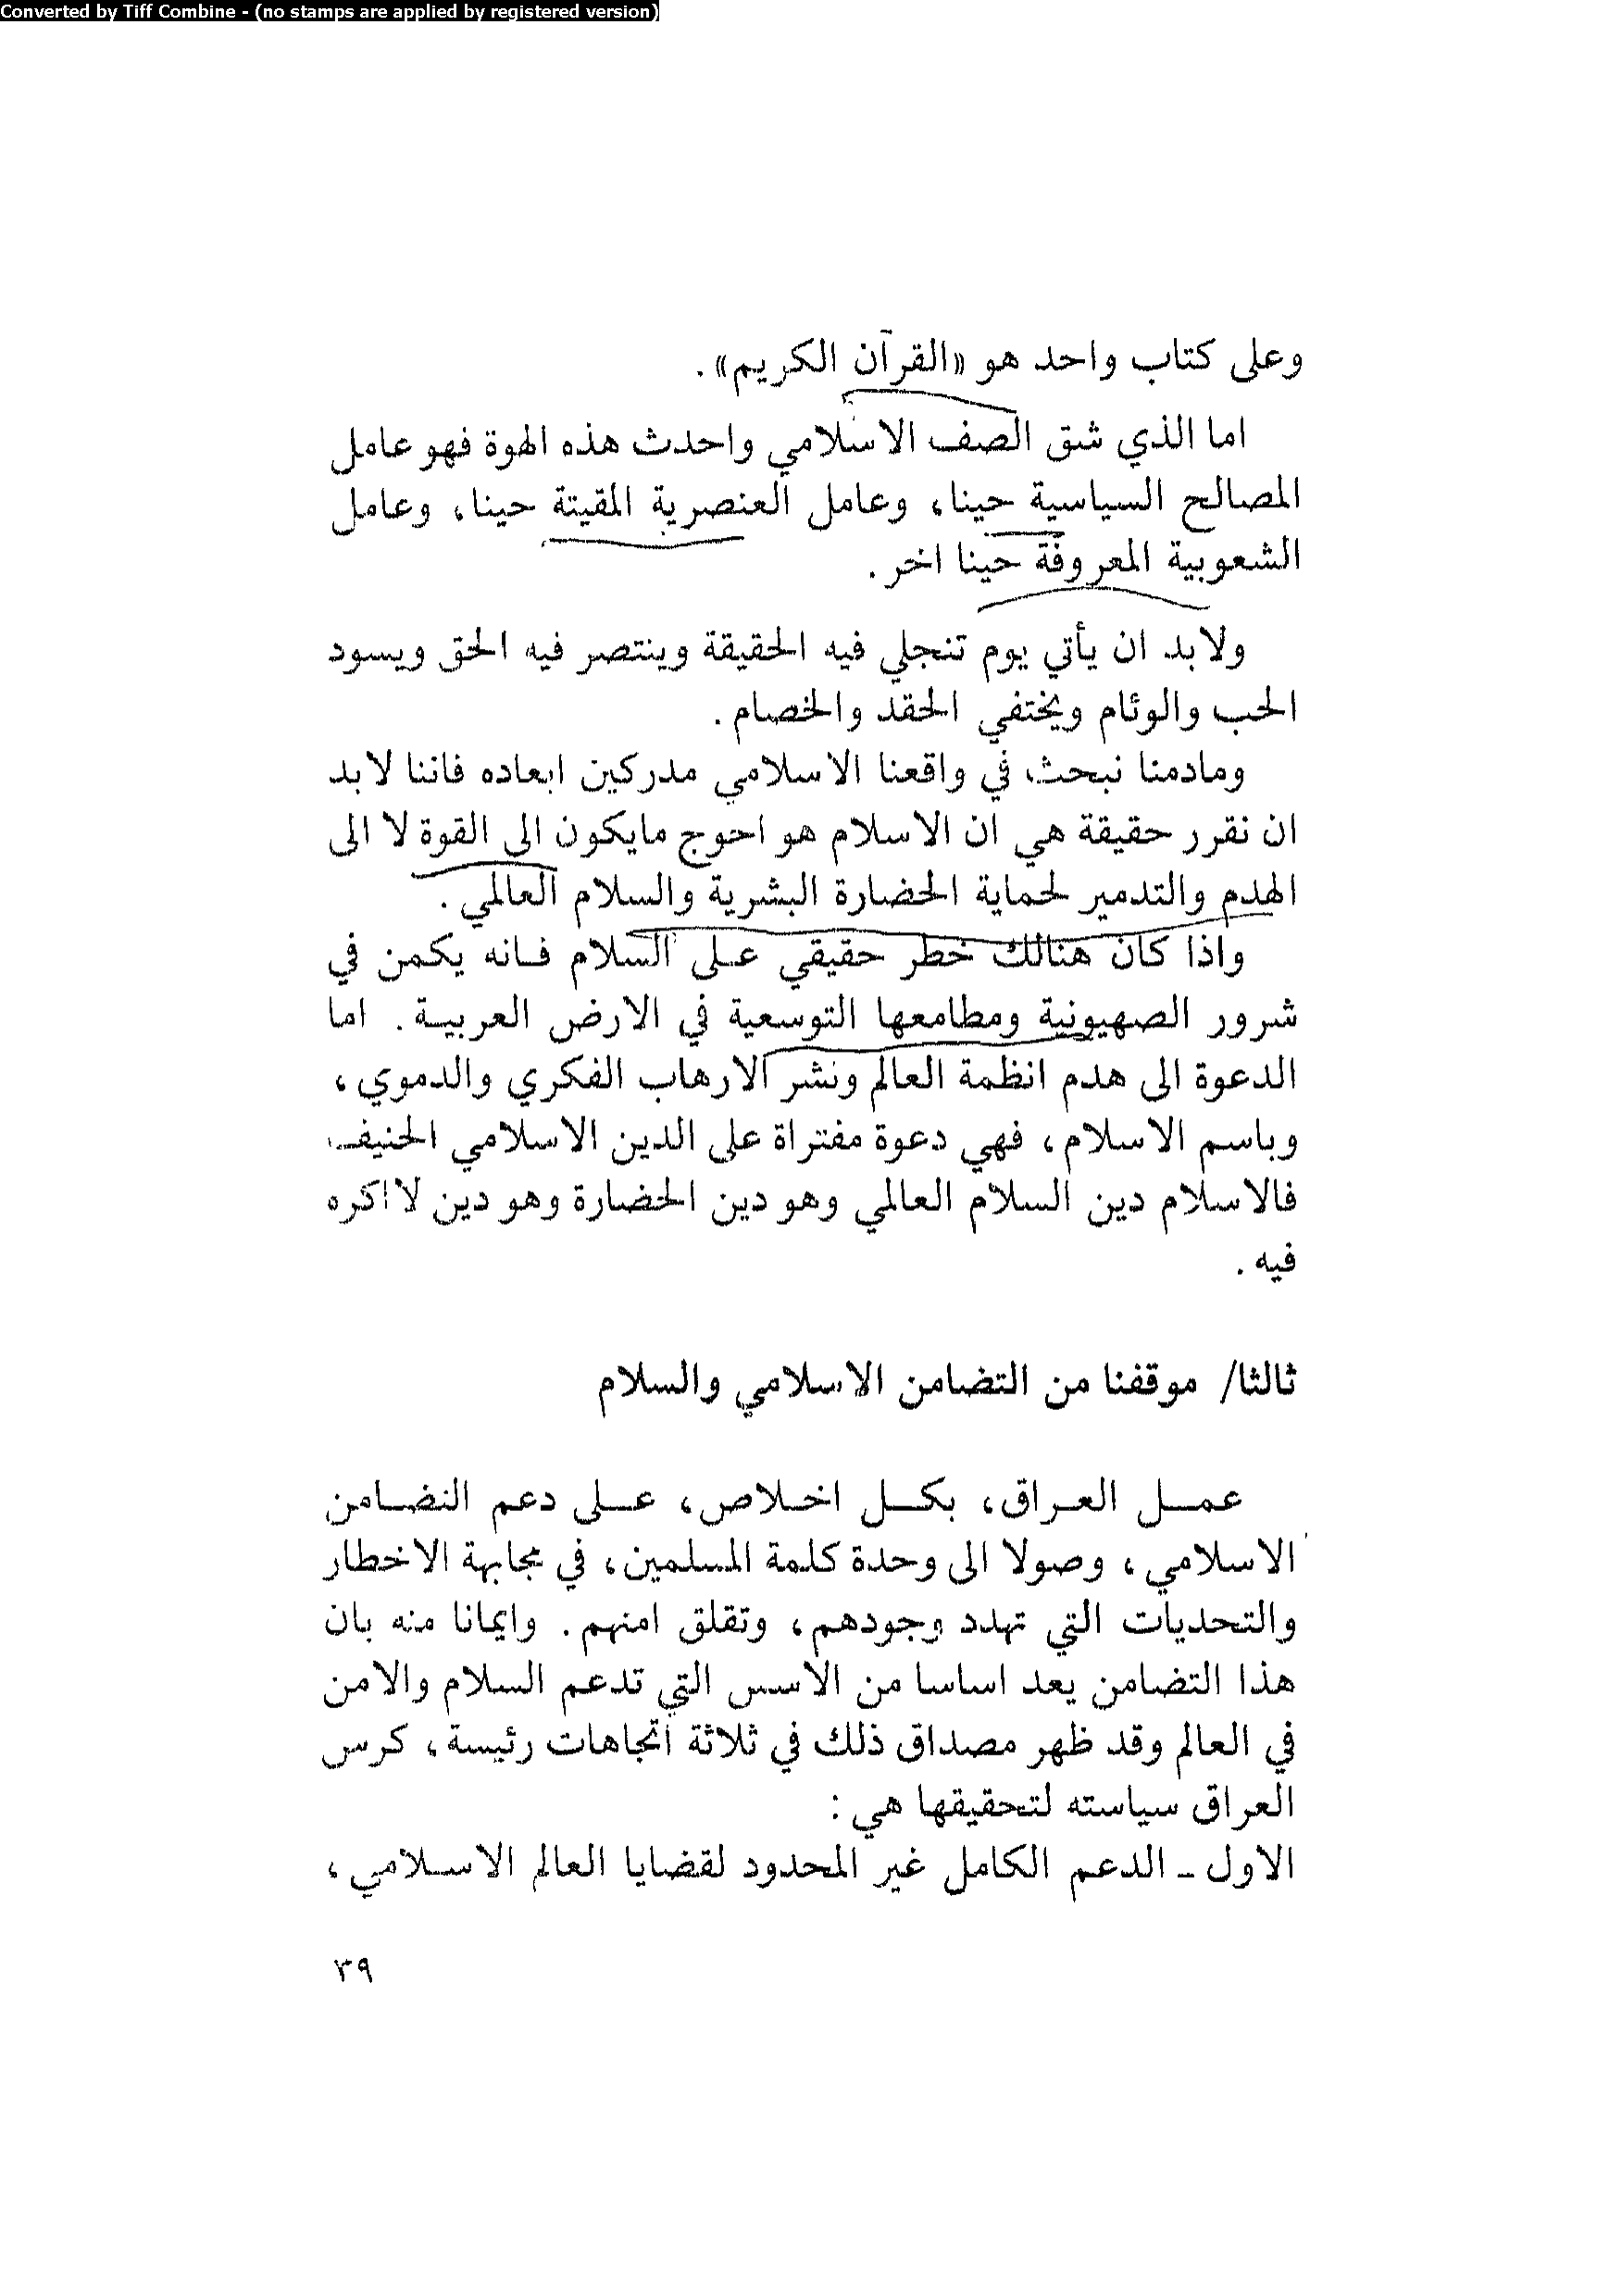 Converted by Tiff Combine - (no stamps are applied by registered version)
وعلى كتاب واحد هو «القرآن الكريم» .
اما الذي شق الصف الاسلامي واحدث هذه الهوة فهو عامل
المصالح السياسية حينا، وعامل العنصرية المقيتة حينا، وعامل
الشعوبية المعروفة حينا اخر .
ولابد ان يأتي يوم تنجلي فيه الحقيقة وينتصر فيه الحق ويسود
الحب والوئام ويختفي الحقد والخصام .
ومادمنا نبحث في واقعنا الاسلامي مدركين ابعاده فاننا لابد
ان نقرر حقيقة هي ان الاسلام هو احوج مايكون الى القوة لا الى
الهدم والتدمير لحماية الحضارة البشرية والسلام العالمي .
واذا كان هنالك خطر حقيقي على السلام فانه يكمن في
شرور الصهيونية ومطامعها التوسعية في الارض العربية . اما
الدعوة الى هدم انظمة العالم ونشر الارهاب الفكري والدموي ،
وباسم الاسلام ، فهي دعوة مفتراة على الدين الاسلامي الحنيف
فالاسلام دين السلام العالمي وهو دين الحضارة وهو دين لااكره
فيه .
ثالثا/ موقفنا من التضامن الاسلامي والسلام
عمل العراق، بكل اخلاص، على دعم التضامن
الاسلامي ، وصولا الى وحدة كلمة المسلمين، في مجابهة الاخطار
والتحديات التي تهدد وجودهم، وتقلق امنهم . وايمانا منه بان
هذا التضامن يعد اساسا من الاسس التي تدعم السلام والامن
في العالم وقد ظهر مصداق ذلك في ثلاثة اتجاهات رئيسة، كرس
العراق سياسته لتحقيقها هي :
الاول ـ الدعم الكامل غير المحدود لقضايا العالم الاسلامي ،
٣٩